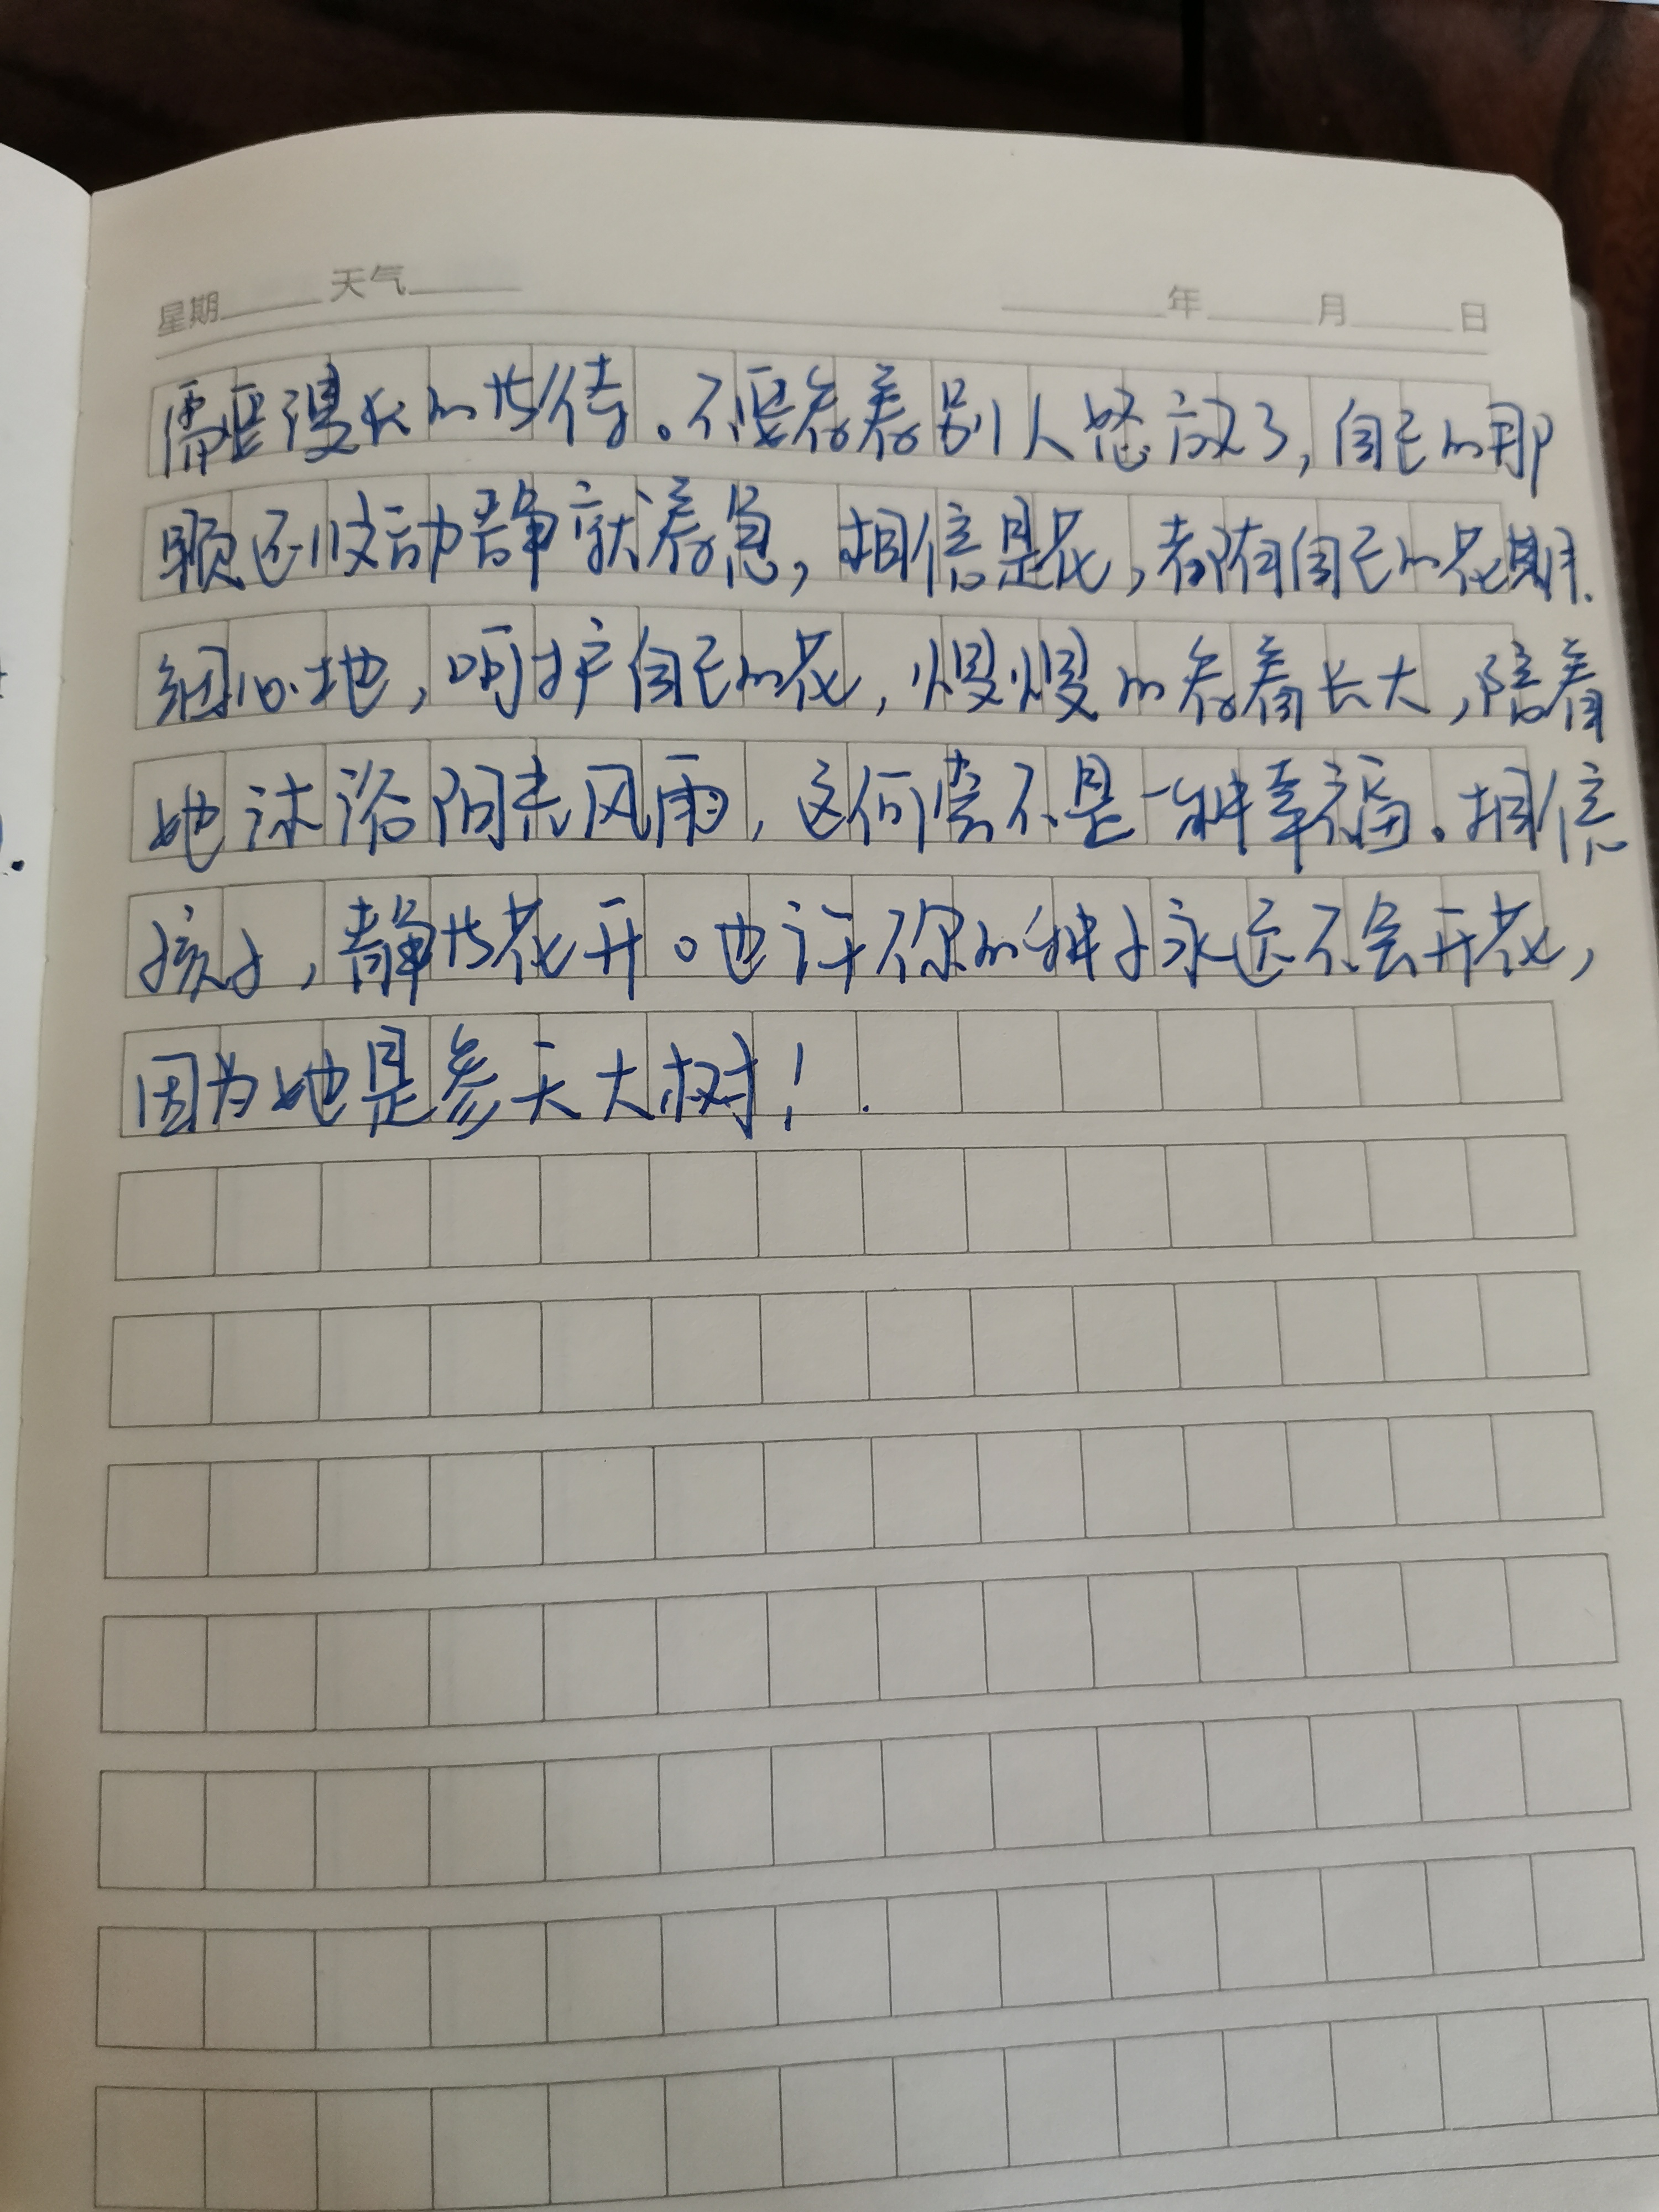 星期 天气 年 月 日
需要漫长的等待。不要看着别人怒放了,自己的那
颗还没动静就着急,相信是花,都有自己的花期.
细心地,呵护自己的花,慢慢的看着长大,陪着
她沐浴阳光风雨,这何尝不是一种幸福。相信
孩子,静等花开。也许你的种子永远不会开花,
因为她是参天大树!